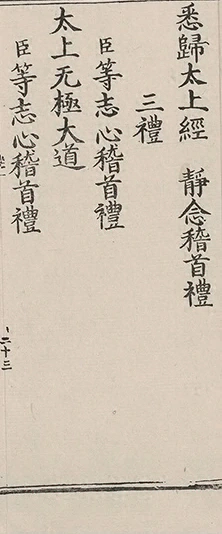 悉歸太上經　靜念稽首禮
三禮
臣等志心稽首禮
太上无極大道
臣等志心稽首禮
二十三